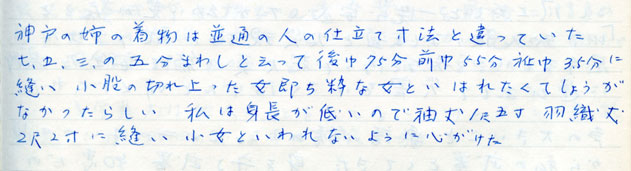 神戸の姉の着物は並通の人の仕立て寸法と違っていた
七、五、三、の五分まわしと云って後巾75分前巾55分衽巾3.5分に
縫い 小股の切れ上った女即ち粋な女といはれたくてしょうが
なかったらしい 私は身長が低いので袖丈1尺五寸 羽織丈
2尺2寸に縫い 小女といわれないように心がけた